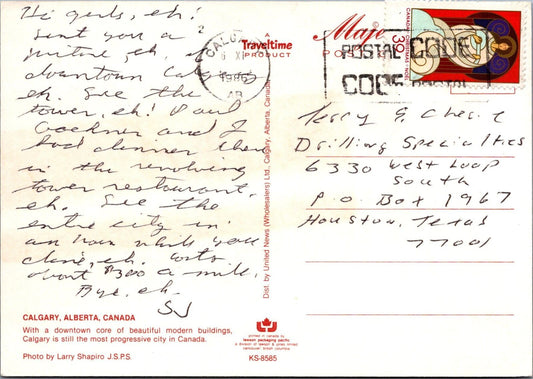 Hi girls, eh!
Sent you a
picture, eh, of
downtown Calgary
eh. See the
tower, eh! Paul
and I
had dinner there
in the revolving
tower restaurant,
eh. See the
entire city in
an hour while you
dine, eh. Costs
about $300 a mile.
Bye, eh.
SJ
CALGARY, ALBERTA, CANADA
With a downtown core of beautiful modern buildings,
Calgary is still the most progressive city in Canada.
Photo by Larry Shapiro J.S.P.S.
A
Traveltime
PRODUCT
Dist. by United News (Wholesalers) Ltd., Calgary, Alberta, Canada
printed in canada by
lawson packaging pacific
a division of lawson & jones limited
vancouver, british columbia
KS-8585
CALGARY
6 XI
1986
AB
POSTAL CODE
CODE POSTAL
39
Terry & Cherie
Drilling Specialties
6330 West Loop
South
P.O. Box 1967
Houston, Texas
77001